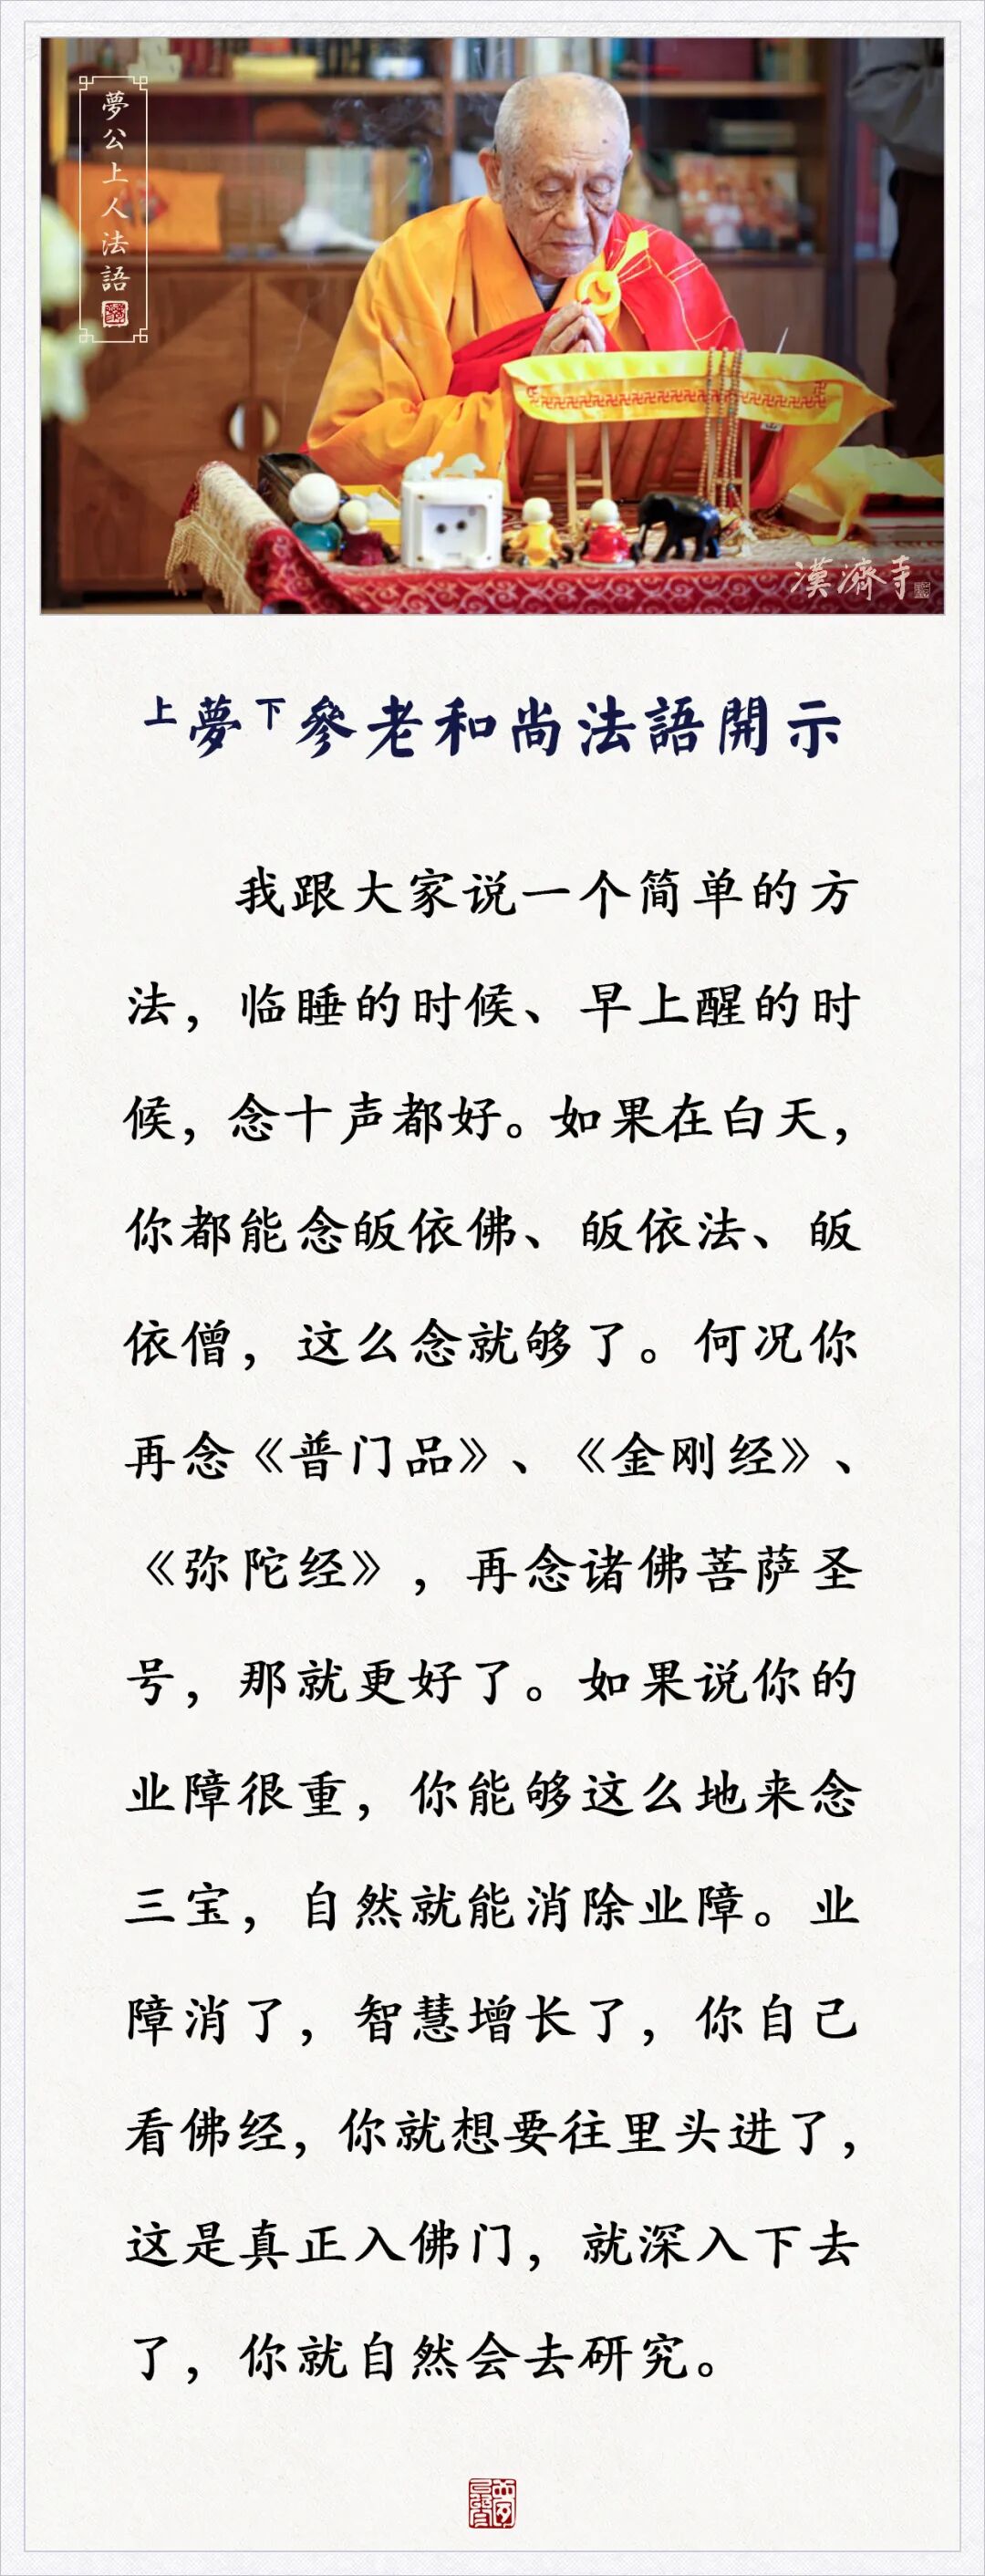 夢公上人法語
漢濟寺
上夢下參老和尚法語開示
我跟大家说一个简单的方
法，临睡的时候、早上醒的时
候，念十声都好。如果在白天，
你都能念皈依佛、皈依法、皈
依僧，这么念就够了。何况你
再念《普门品》、《金刚经》、
《弥陀经》，再念诸佛菩萨圣
号，那就更好了。如果说你的
业障很重，你能够这么地来念
三宝，自然就能消除业障。业
障消了，智慧增长了，你自己
看佛经，你就想要往里头进了，
这是真正入佛门，就深入下去
了，你就自然会去研究。